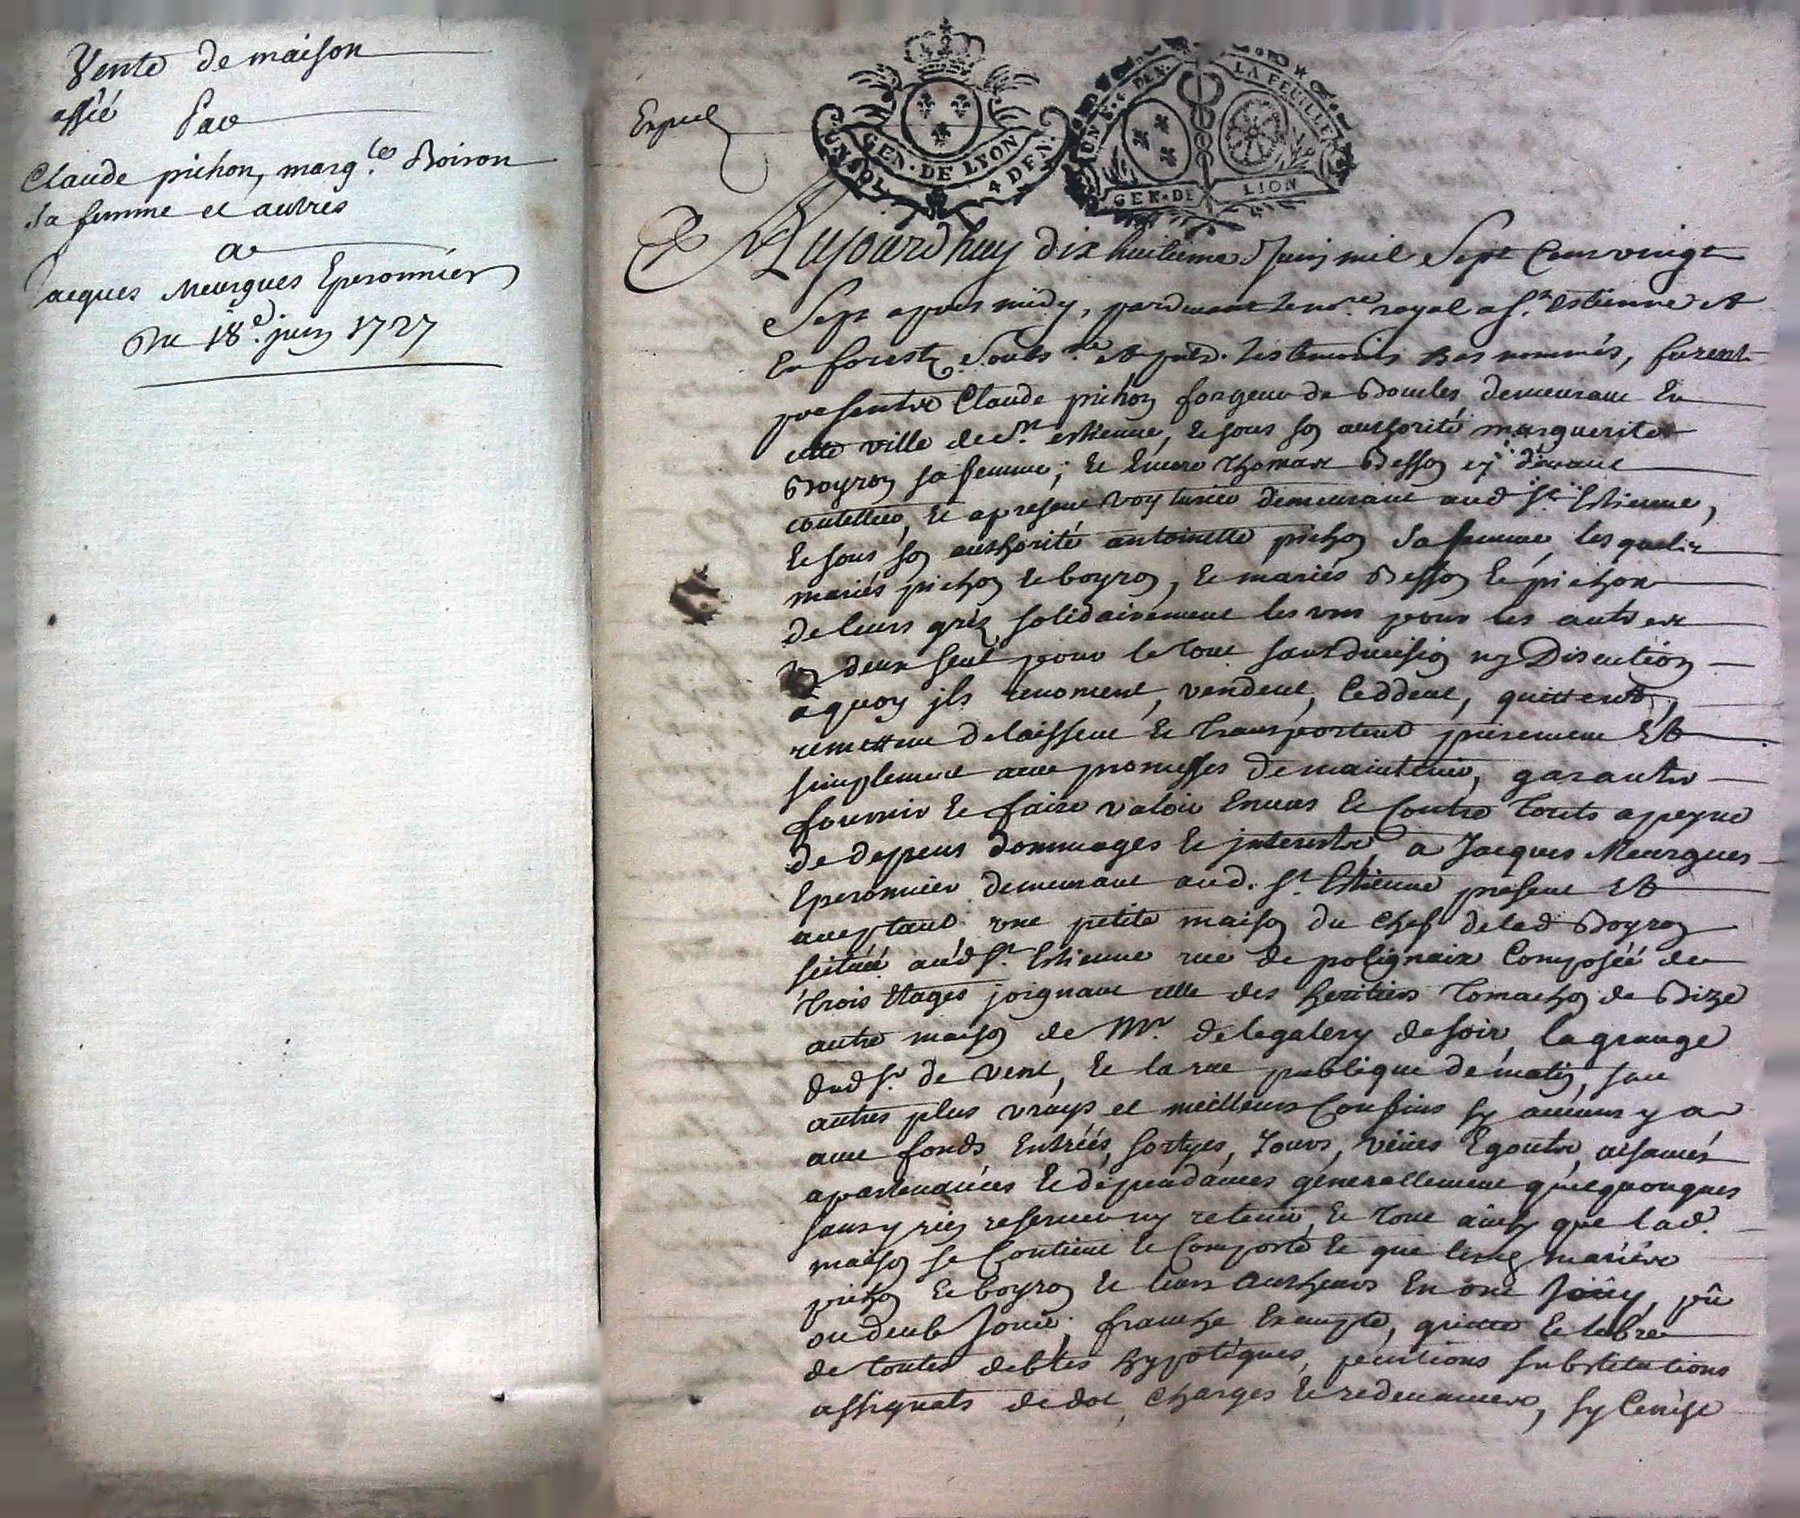 Vente de maison
Par
Claude pichon, marg.te Boiron
sa femme et autres
a
Jacques Meurgues Eperonnier
Du 18.e juin 1727
Exped
GEN. DE LYON
4 DEN.
UN S. 4 DEN. LA FEUILLE
GEN. DE LION
Aujourdhuy dix huitieme Juin mil Sept Cens vingt
Sept apres midy, pardevant le no.re royal a s.t estienne
En forest Soubs.né et les temoins bas nommés, furent
presents Claude pichon forgeur de Boucles demeurant En
cette ville de s.t estienne, & sous son authorité marguerite
Boyron sa femme; & Encore Thomas Besson cy devant
coutellier, & apresent voyturier demeurant aud s.t Estienne,
& sous son authorité antoinette pichon sa femme, lesquels
mariés pichon & boyron, & mariés Besson & pichon
de leurs gréz solidairement les uns pour les autres
deux seul pour le tout sans division ny Discution
a quoy ils renoncent, vendent, Ceddent, quittent,
remettent delaissent & Transportent purement Et
simplement avec promesses de maintenir, garantir
fournir & faire valoir Envers & Contre Touts a peyne
de depens dommages & interests, a Jacques Meurgues
Eperonnier demeurant aud. s.t Estienne present Et
acceptant une petite maison du chef de lad Boyron
scituée aud s.t Estienne rue de polignaix Composée de
Trois Etages joignant celle des heritiers Tomachon de Bize
autre maison de Mr. delegalery de soir, la grange
dud s.r de vent, & la rue publique de matin, sauf
autres plus vrays et meilleurs Confins sy aucuns y a
avec fonds Entrées, sortyes, Jours, vües Egouts, aisances
apartenances & dépendances generallement quelquonques
sans y rien reserver ny retenir, & tout ainsy que lad.
maison se Contient & Comporte & que lesd mariés
pichon & boyron & leurs autheurs En ont Joüy, pû
ou deub Jouir, franche Exempte, quitte & libre
de toutes debtes hypotèques, pentions substitutions
assignats de dot, charges & redevances, sy Cen'est